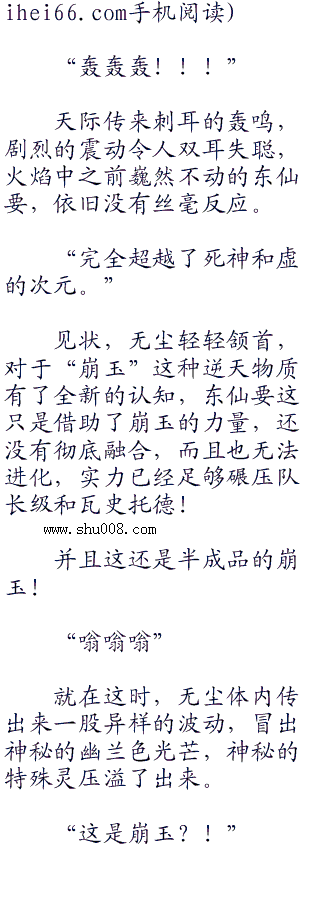 ihei66.com手机阅读)
“轰轰轰！！！”
天际传来刺耳的轰鸣，
剧烈的震动令人双耳失聪，
火焰中之前巍然不动的东仙
要，依旧没有丝毫反应。
“完全超越了死神和虚
的次元。”
见状，无尘轻轻颔首，
对于“崩玉”这种逆天物质
有了全新的认知，东仙要这
只是借助了崩玉的力量，还
没有彻底融合，而且也无法
进化，实力已经足够碾压队
长级和瓦史托德！
www.shu008.com
并且这还是半成品的崩
玉！
“嗡嗡嗡”
就在这时，无尘体内传
出来一股异样的波动，冒出
神秘的幽兰色光芒，神秘的
特殊灵压溢了出来。
“这是崩玉？！”